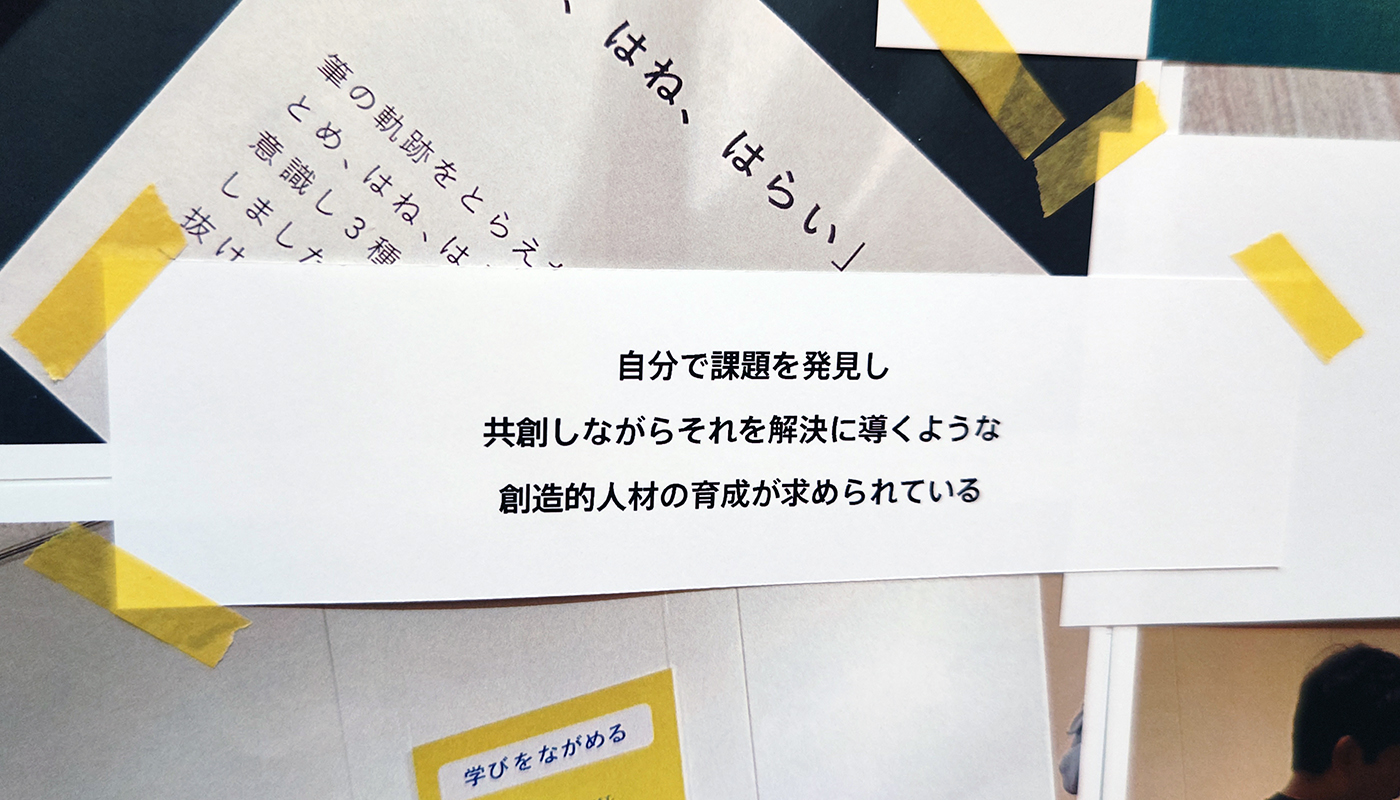 はね、はらい」
筆の軌跡をとらえ
とめ、はね、は
意識し3種
しました
抜け
自分で課題を発見し
共創しながらそれを解決に導くような
創造的人材の育成が求められている
学びをながめる